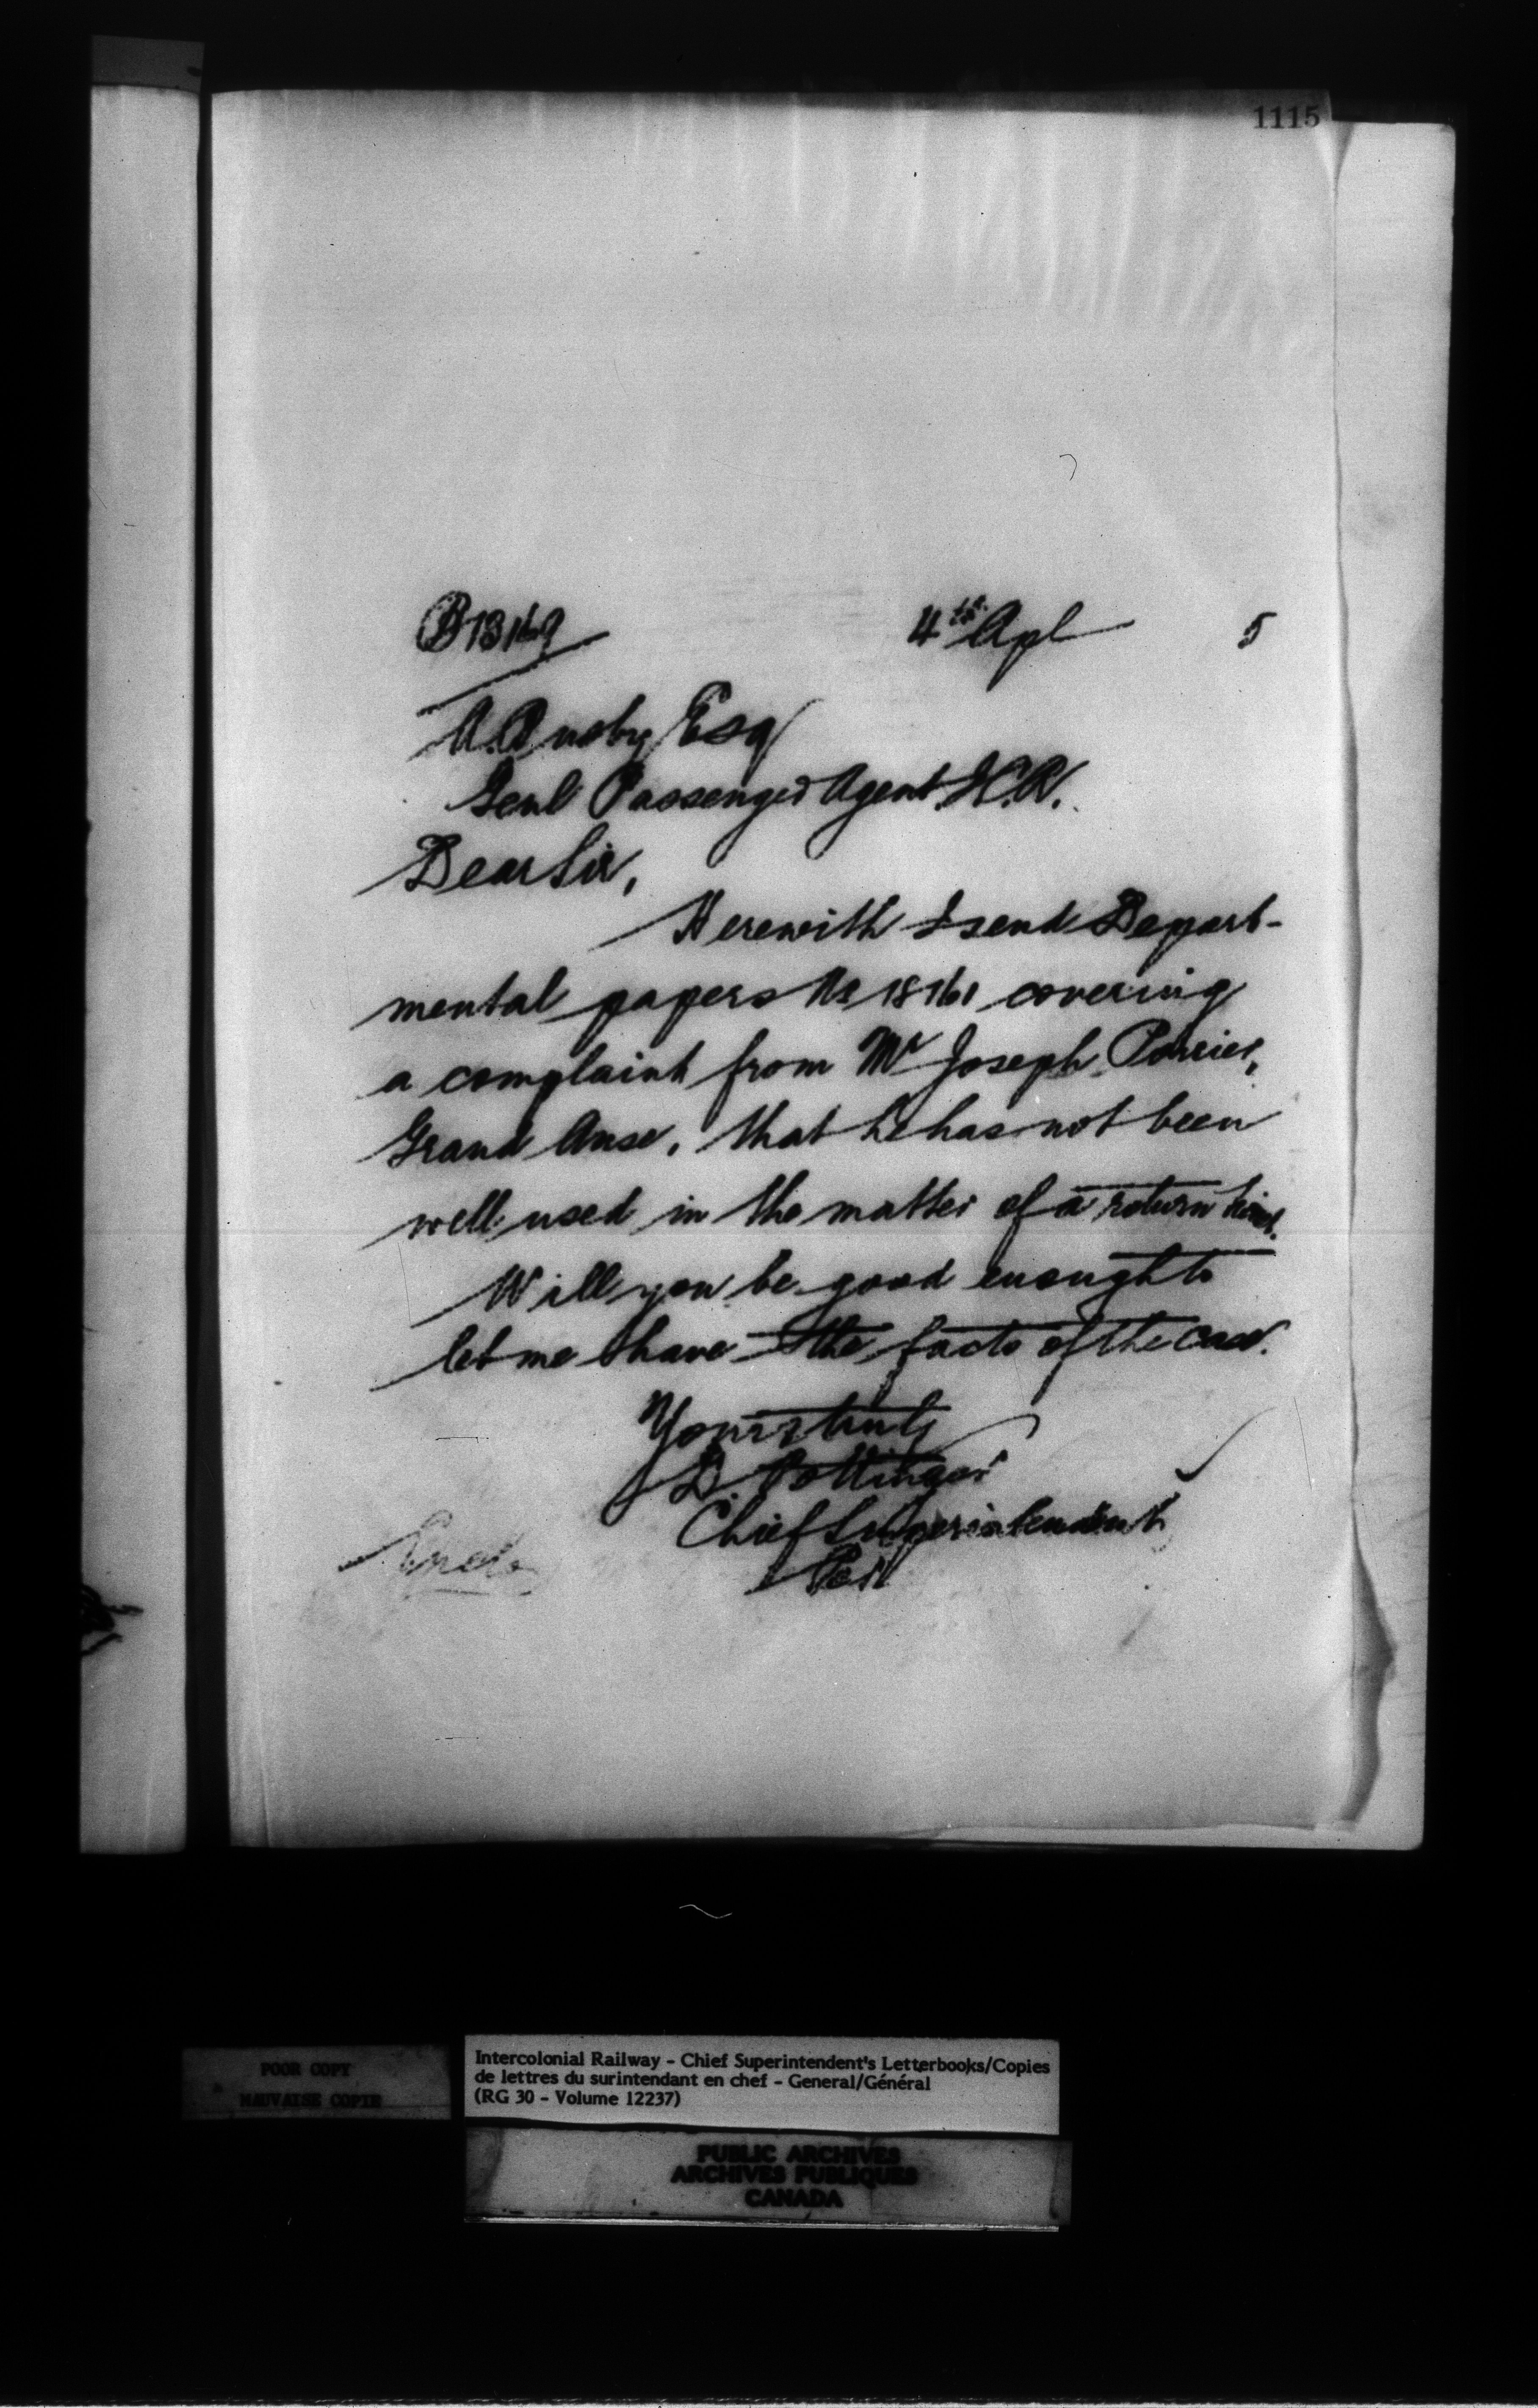 1115
4th Apl 5
A. Busby Esq
Genl Passenger Agent I.C.R.
Dear Sir,
Herewith I send Depart-
mental papers No 18161 covering
a complaint from Mr Joseph Poirier,
Grand Anse, that he has not been
well used in the matter of a return ticket.
Will you be good enough to
let me have the facts of the case.
Yours truly
D. Pottinger
Chief Superintendent
Enclo
POOR COPY
MAUVAISE COPIE
Intercolonial Railway - Chief Superintendent's Letterbooks/Copies
de lettres du surintendant en chef - General/Général
(RG 30 - Volume 12237)
PUBLIC ARCHIVES
ARCHIVES PUBLIQUES
CANADA